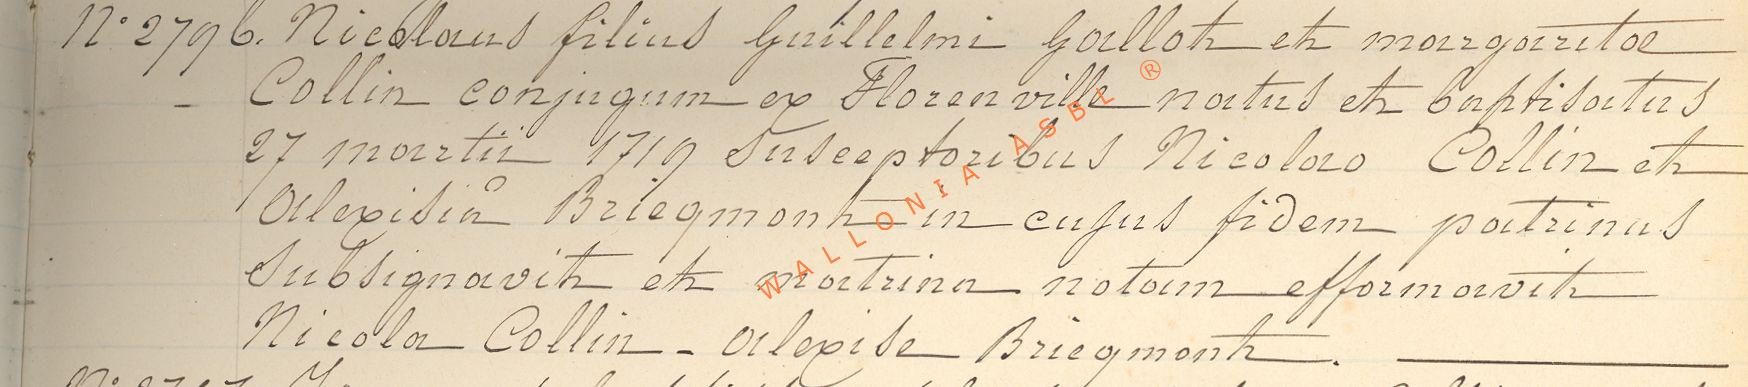 N° 2796. Nicolaus filius Guillelmi Gallot et margaritae
Collin conjugum ex Florenville natus et baptisatus
27 martii 1719 Susceptoribus Nicolao Collin et
Alexisiâ Briegmont in cujus fidem patrinus
subsignavit et matrina notam efformavit
Nicola Collin - Alexise Briegmont.
WALLONIA ASBL ®